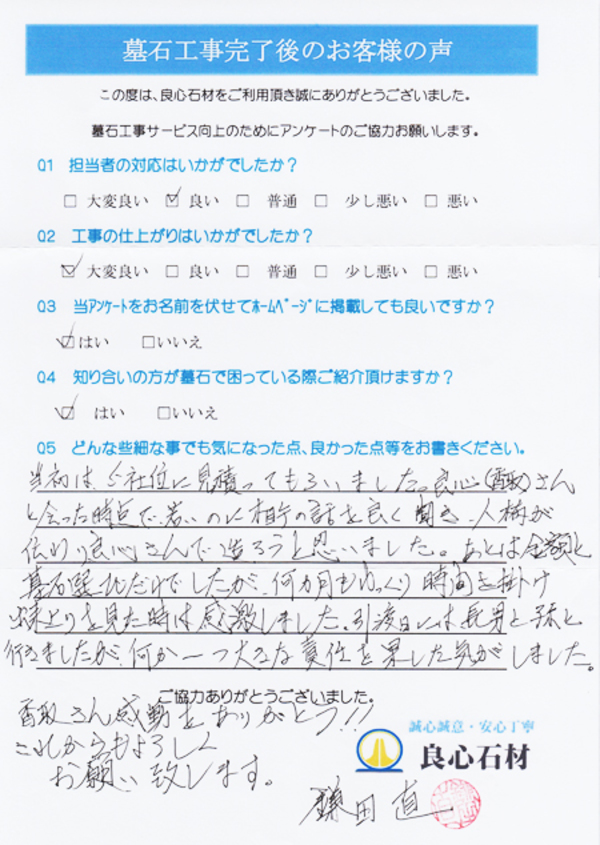 墓石工事完了後のお客様の声
この度は、良心石材をご利用頂き誠にありがとうございました。
墓石工事サービス向上のためにアンケートのご協力お願いします。
Q1 担当者の対応はいかがでしたか?
□ 大変良い ☑ 良い □ 普通 □ 少し悪い □ 悪い
Q2 工事の仕上がりはいかがでしたか?
☑ 大変良い □ 良い □ 普通 □ 少し悪い □ 悪い
Q3 当ｱﾝｹｰﾄをお名前を伏せてﾎｰﾑﾍﾟｰｼﾞに掲載しても良いですか?
☑はい □いいえ
Q4 知り合いの方が墓石で困っている際ご紹介頂けますか?
☑ はい □いいえ
Q5 どんな些細な事でも気になった点、良かった点等をお書きください。
当初は、5社位に見積ってもらいました。良心(香取)さん
と会った時点で、若いのに相手の話を良く聞き、人柄が
伝わり良心さんで造ろうと思いました。あとは金額と
墓石選びだけでしたが、何カ月もゆっくり時間を掛け
仕上りを見た時は感激しました。引渡日には長男と孫と
行きましたが、何か一つ大きな責任を果した気がしました。
ご協力ありがとうございました。
香取さん感動をありがとう!!
これからもよろしく
お願い致します。
誠心誠意・安心丁寧
良心石材
鎌田 直